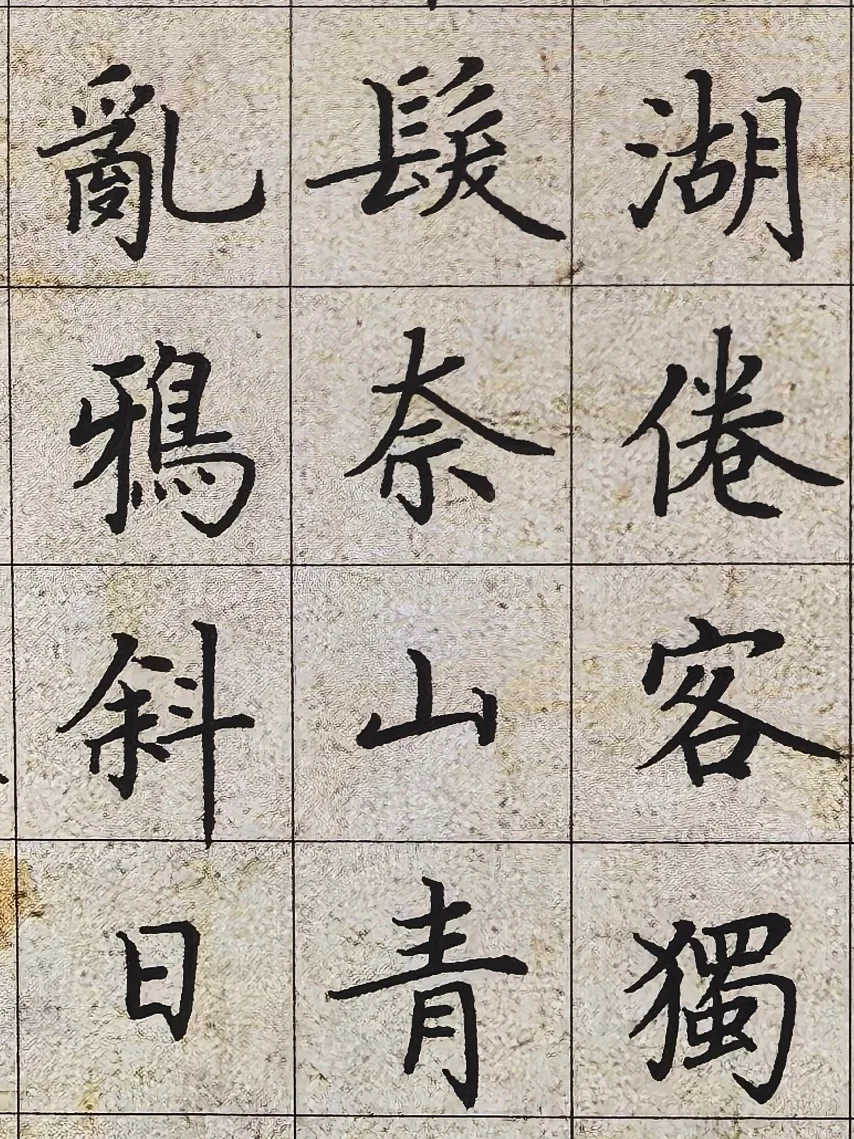 湖倦客獨
髮奈山青
亂鴉斜日